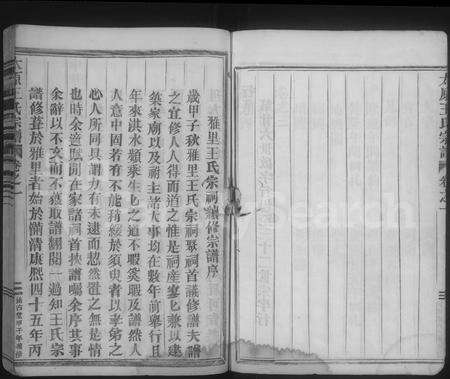 雅里王氏宗祠續修宗譜序
歲甲子秋雅里王氏宗祠聚祠首議修譜夫譜
之宜修人人得而道之惟是祠産塞匕兼以建
築家廟以及祔主諸大事均在數年前舉行且
年來洪水頻乘生匕之道不暇奚暇及譜然人
人意中固若有不能稍緩於須臾者以孝弟之
心人所同具謂力有未逮而恝然置之無是情
也時余適賦閒在家諸祠首挾譜囑余序其事
余辭以不文而不獲取譜繙閱一過知王氏宗
譜修葺於雅里者始於前清康熙四十五年丙
太原王氏宗譜 卷之一
太原王氏宗譜 卷之一